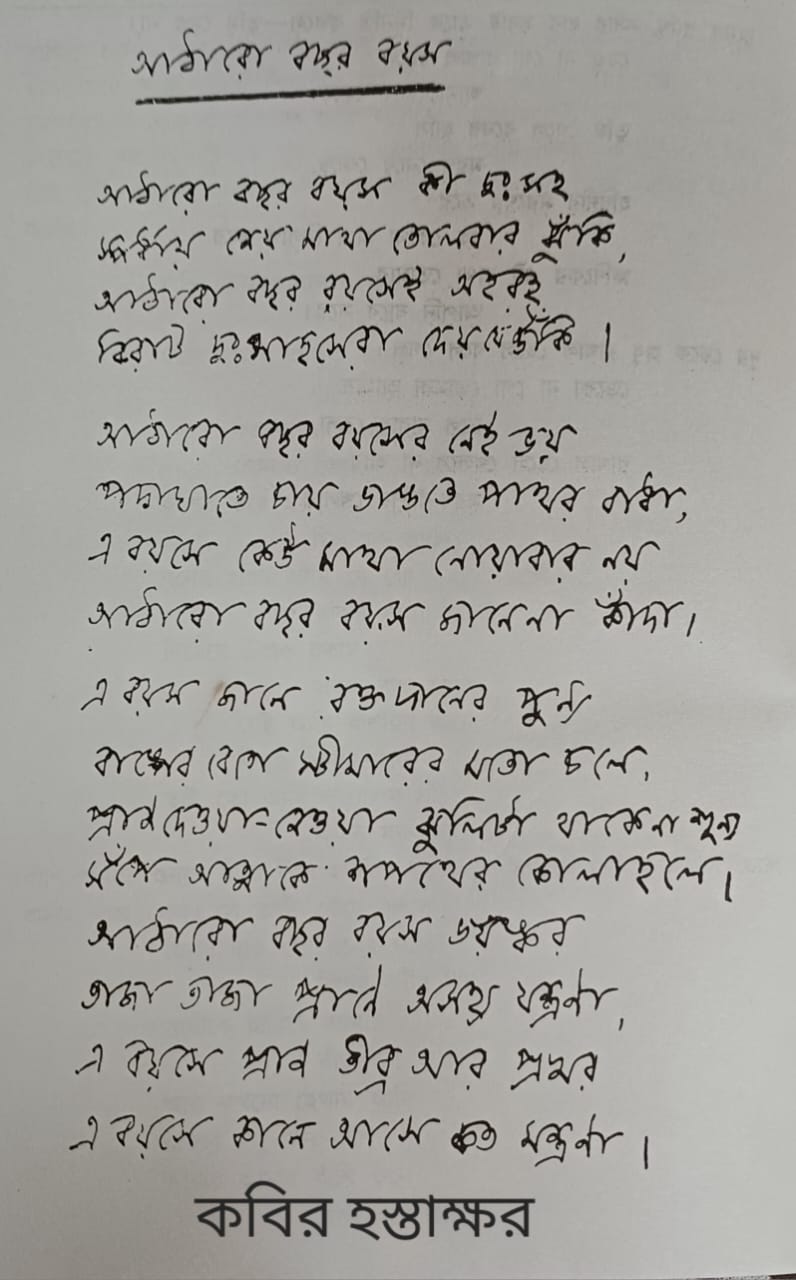 আঠারো বছর বয়স
আঠারো বছর বয়স কী দুঃসহ
স্পর্ধায় নেয় মাথা তোলবার ঝুঁকি,
আঠারো বছর বয়সেই অহরহ
বিরাট দুঃসাহসেরা দেয় যে উঁকি।
আঠারো বছর বয়সের নেই ভয়
পদাঘাতে চায় ভাঙতে পাথর বাধা,
এ বয়সে কেউ মাথা নোয়াবার নয়
আঠারো বছর বয়স জানেনা কাঁদা।
এ বয়স জানে রক্তদানের পুণ্য
বাষ্পের বেগে স্টীমারের মতো চলে,
প্রাণ দেওয়া-নেওয়া ঝুলিটা থাকেনা শূন্য
সঁপে আত্মাকে শপথের কোলাহলে।
আঠারো বছর বয়স ভয়ঙ্কর
তাজা তাজা প্রাণে অসহ্য যন্ত্রণা,
এ বয়সে প্রাণ তীব্র আর প্রখর
এ বয়সে কানে আসে কত মন্ত্রণা।
কবির হস্তাক্ষর